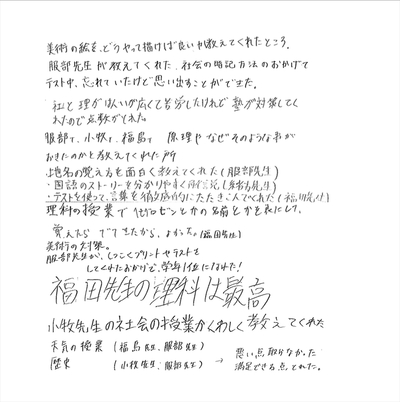 美術の絵を、どうやって描けば良いか教えてくれたところ。
服部先生が教えてくれた、社会の暗記方法のおかげで
テスト中、忘れていたけど思い出すことができた。
社と理がはんいが広くて苦労したけれど塾が対策してく
れたので点数がとれた。
服部T、小牧T、福島T 原理やなぜそのような事が
おきたのかと教えてくれた所
・地名の覚え方を面白く教えてくれた(服部先生)
・国語のストーリーを分かりやすく
・テストを使って、言葉を徹底的にたたきこんでくれた(福島先生)
理科の授業で
覚えたら できてきたから、よかった。(福田先生)
美術の対策。
服部先生が、しつこくプリントやテストを
してくれたおかげで、学年1位になれた!
福田先生の理科は最高
小牧先生の社会の授業がくわしく教えてくれた
天気の授業 (福島先生、服部先生) → 悪い点取らなかった
歴史 (小牧先生、服部先生) 満足できる点とれた。